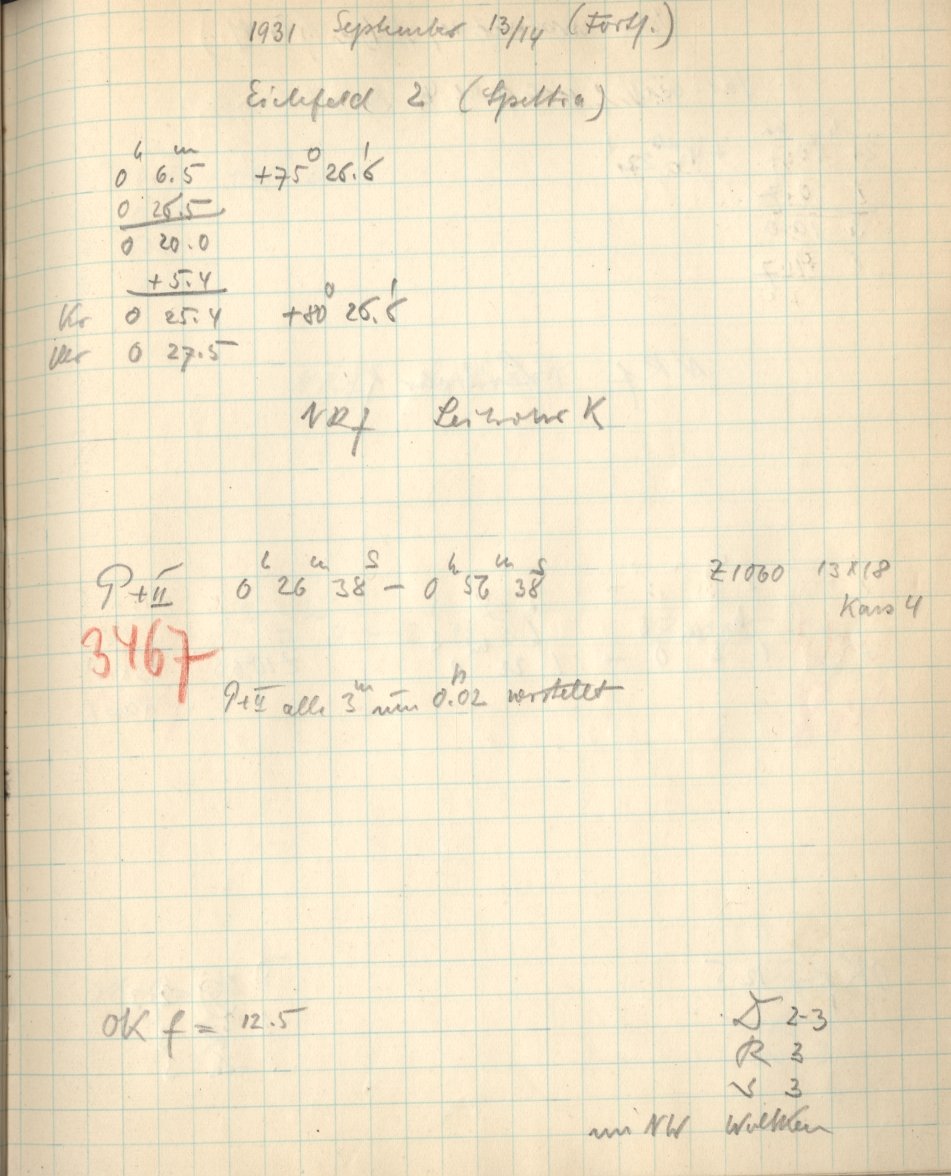 1931 September 13/14 (Forts.)
Eichfeld 2 (Spektra)
0h 6.5m +75° 26.'6
0 26.5
0 20.0
+5.4
Kr 0 25.4 +80° 26.'6
0 27.5
NRf K
P+II 0h 26m 38s – 0h 56m 38s Z1060 13x18
Kass 4
3467
P+II alle 3m um 0.02 verstellt
OK f = 12.5
D 2-3
R 3
S 3
im NW Wolken